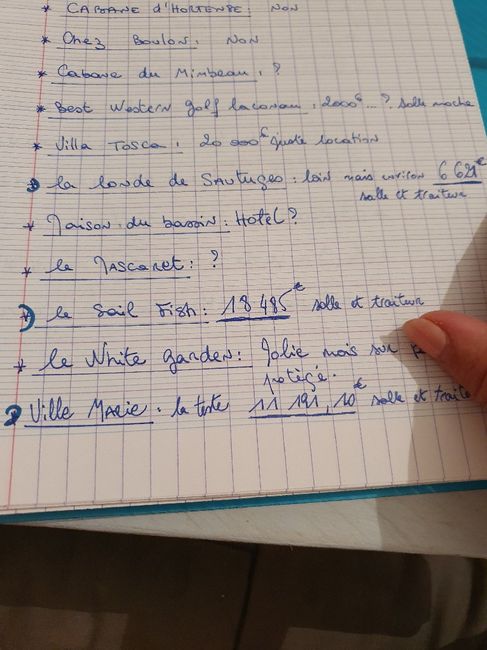 * CABANE d'HORTENSE : NON
* Chez Boulon : NON
* Cabane du Mimbeau : ?
* Best Western golf lacanau : 2000€ ...? salle moche
* Villa Tosca : 20 000€ juste location
3 la londe de Sautuges : loin mais environ 6 621€
salle et traiteur
* Maison du bassin : Hotel ?
* le Mascaret : ?
1 le Sail Fish : 18 485€ salle et traiteur
* le White garden : Jolie mais sur
protégé.
2 Ville Marie . la teste 11 191,10€ salle et traite